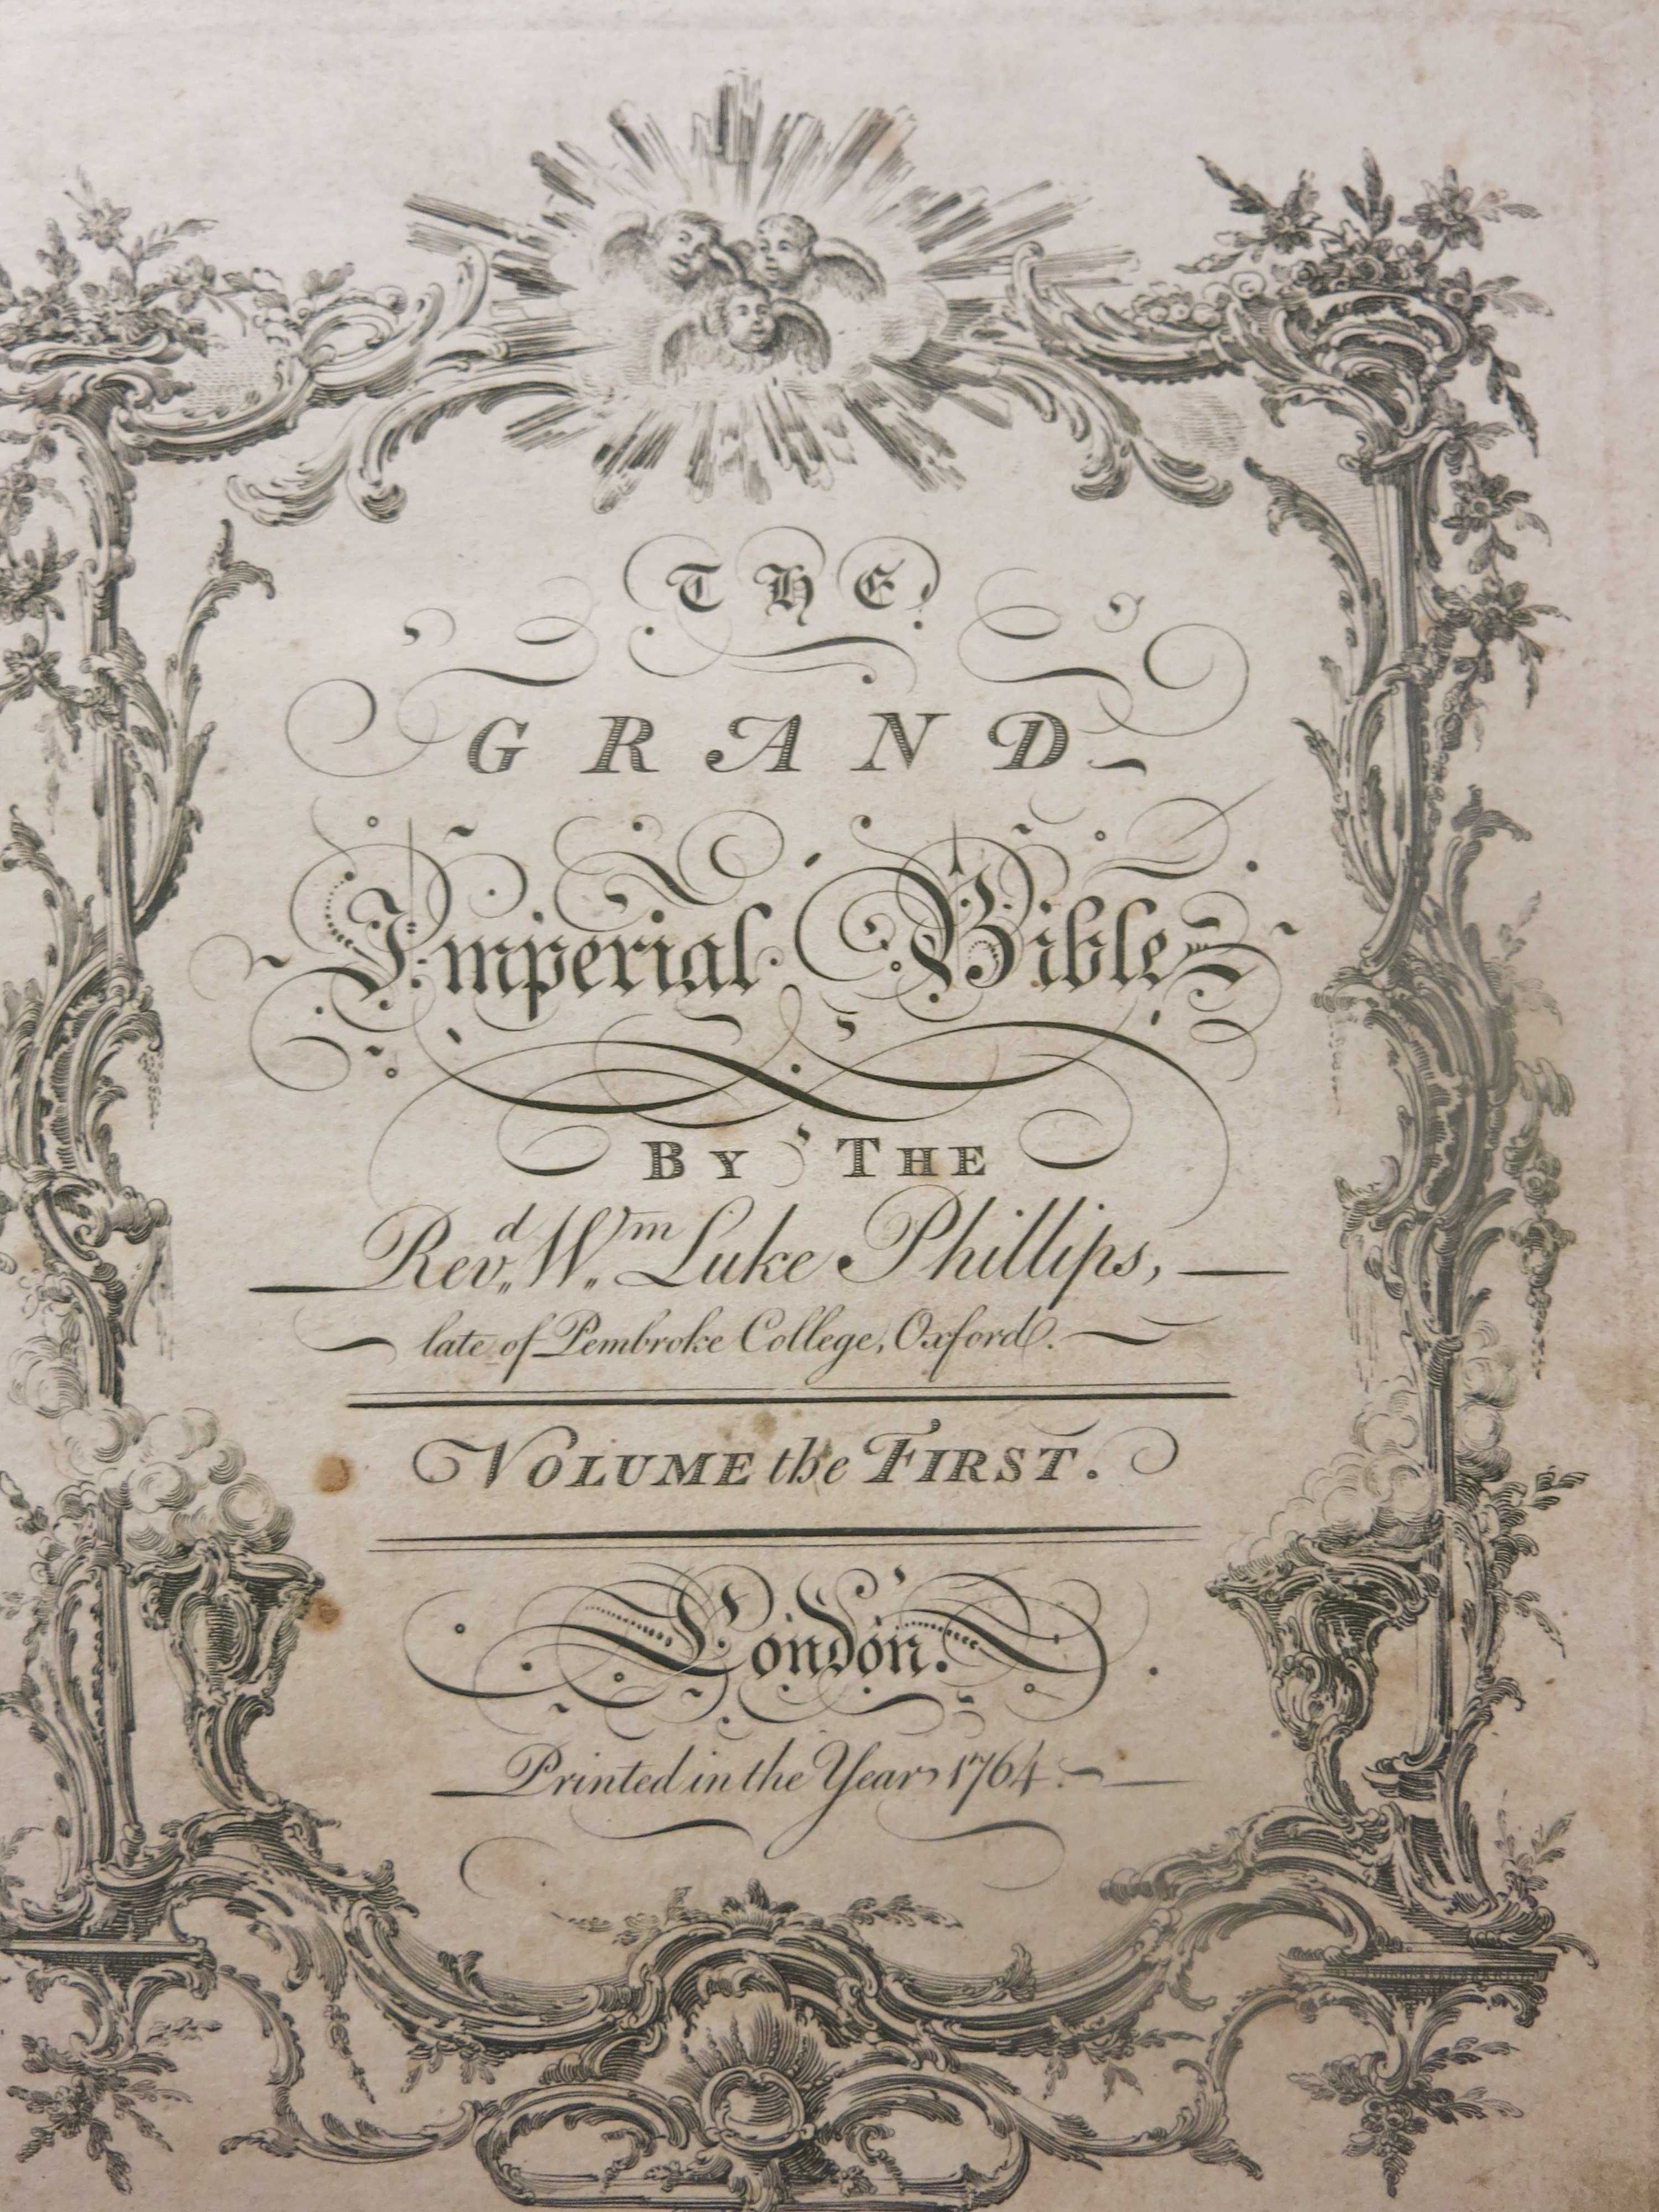 THE
GRAND
Imperial Bible
BY THE
Revd. Wm. Luke Phillips,
late of Pembroke College, Oxford.
VOLUME the FIRST.
London.
Printed in the Year 1764.